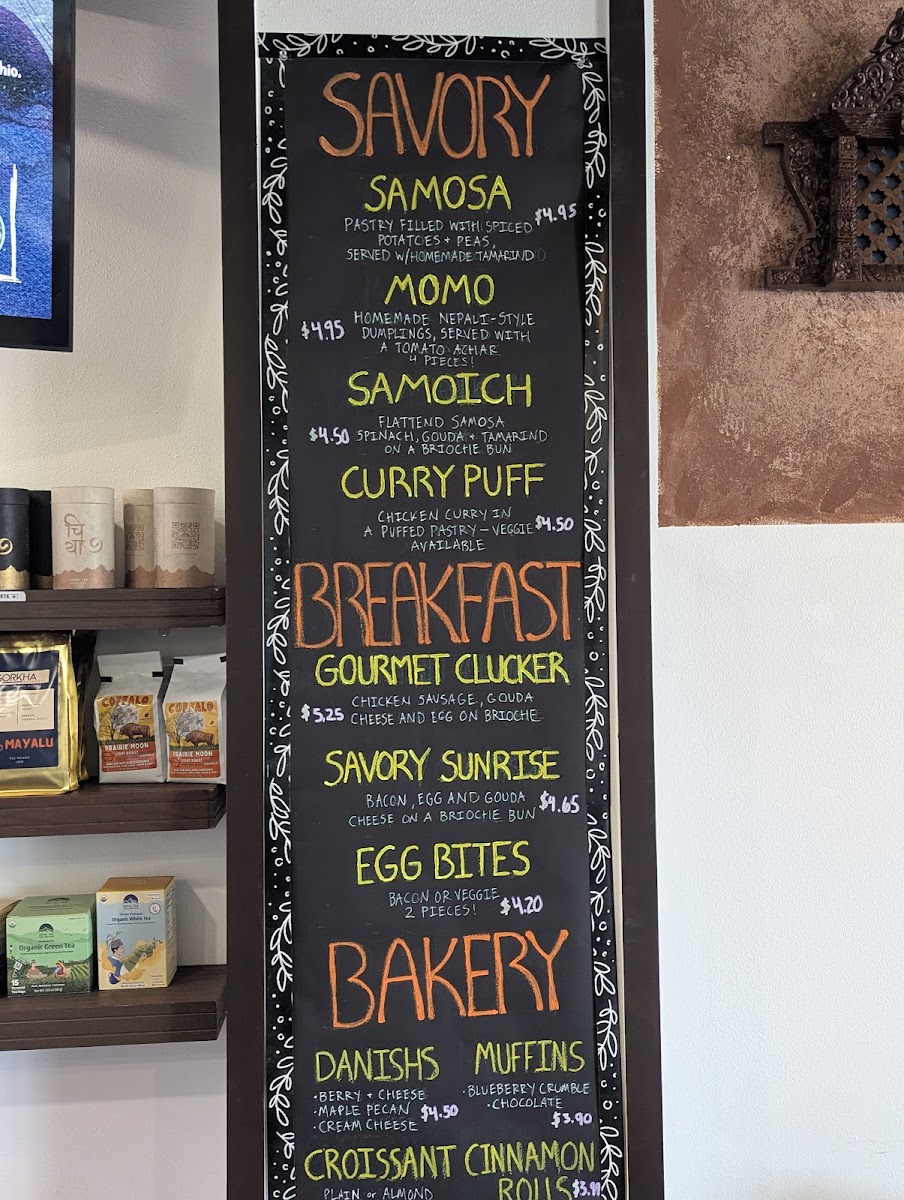 hio.
SAVORY
SAMOSA
$4.95
PASTRY FILLED WITH SPICED
POTATOES + PEAS,
SERVED W/HOMEMADE TAMARIND
MOMO
$4.95
HOMEMADE NEPALI-STYLE
DUMPLINGS, SERVED WITH
A TOMATO ACHAR
4 PIECES!
SAMOICH
FLATTEND SAMOSA
$4.50 SPINACH, GOUDA + TAMARIND
ON A BRIOCHE BUN
CURRY PUFF
CHICKEN CURRY IN
A PUFFED PASTRY - VEGGIE $4.50
AVAILABLE
BREAKFAST
GOURMET CLUCKER
CHICKEN SAUSAGE, GOUDA
$5.25 CHEESE AND EGG ON BRIOCHE
SAVORY SUNRISE
BACON, EGG AND GOUDA $4.65
CHEESE ON A BRIOCHE BUN
EGG BITES
BACON OR VEGGIE
2 PIECES! $4.20
BAKERY
DANISHS
· BERRY + CHEESE
· MAPLE PECAN $4.50
· CREAM CHEESE
MUFFINS
· BLUEBERRY CRUMBLE
· CHOCOLATE
$3.90
CROISSANT
PLAIN or ALMOND
CINNAMON
ROLLS $3.99
चि
या
GORKHA
MAYALU
COFFALO
PRAIRIE MOON
LIGHT ROAST
COFFALO
PRAIRIE MOON
LIGHT ROAST
Organic Green Tea
15
Organic White Tea